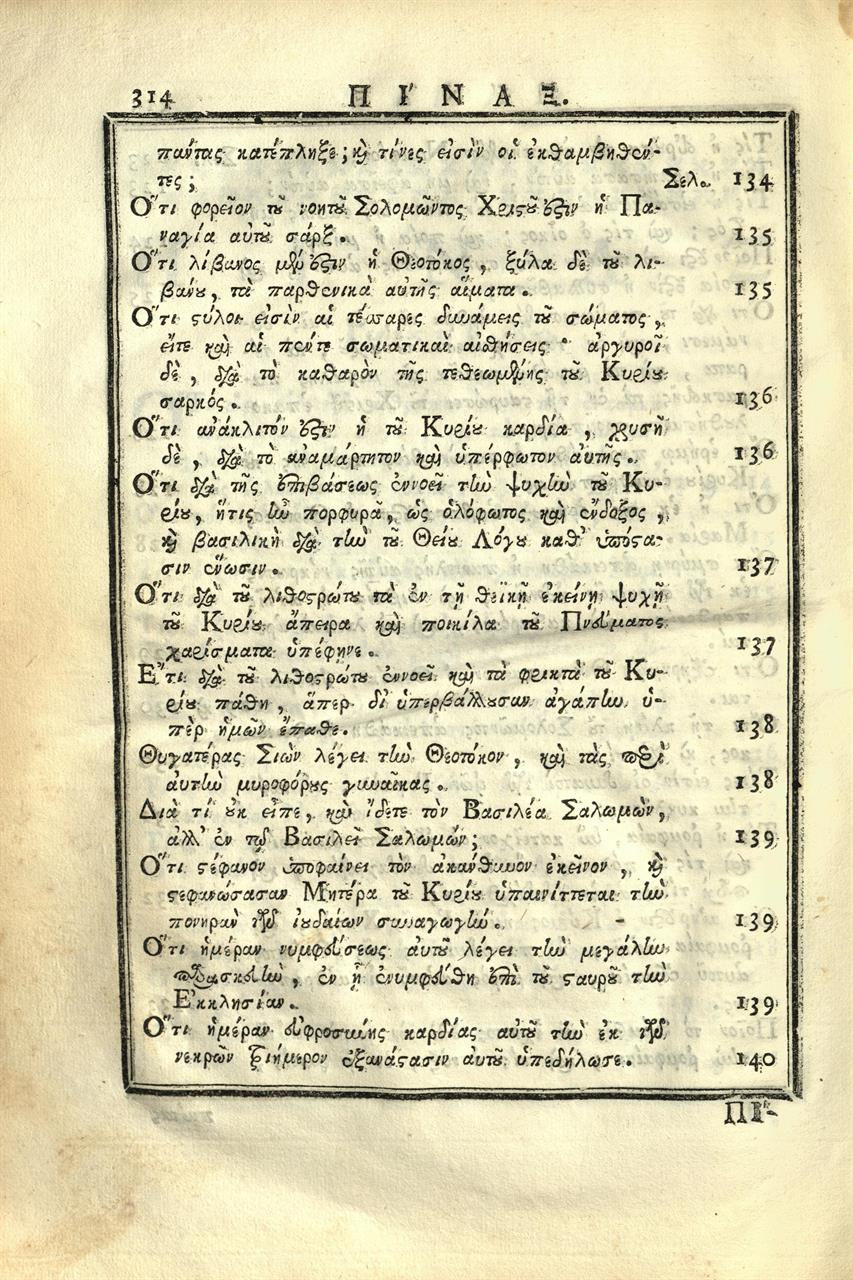 314 ΠΙ´ΝΑΞ.
πάντας κατέπληξε; καὶ τίνες εἰσὶν οἱ ἐκθαμβηθέν-
τες; Σελ. 134
Ὅτι φορεῖον τοῦ νοητοῦ Σολομῶντος Χριστοῦ ἐστιν ἡ Πα-
ναγία αὐτοῦ σάρξ. 135
Ὅτι λίβανος μέν ἐστιν ἡ Θεοτόκος, ξύλα δὲ τοῦ λι-
βάνου, τὰ παρθενικὰ αὐτῆς αἵματα. 135
Ὅτι στύλοι εἰσὶν αἱ τέσσαρες δυνάμεις τοῦ σώματος,
εἴτε καὶ αἱ πέντε σωματικαὶ αἰσθήσεις· ἀργυροῖ
δὲ, διὰ τὸ καθαρὸν τῆς τεθεωμένης τοῦ Κυρίου
σαρκός. 136
Ὅτι ἀνάκλιτόν ἐστιν ἡ τοῦ Κυρίου καρδία, χρυσῆ
δὲ, διὰ τὸ ἀναμάρτητον καὶ ὑπέρφωτον αὐτῆς. 136
Ὅτι διὰ τῆς ἐπιβάσεως ἐννοεῖ τὴν ψυχὴν τοῦ Κυ-
ρίου, ἥτις ἦν πορφυρᾶ, ὡς ὁλόφωτος καὶ ἔνδοξος,
καὶ βασιλικὴ διὰ τὴν τοῦ Θείου Λόγου καθ' ὑπόστα-
σιν ἕνωσιν. 137
Ὅτι διὰ τοῦ λιθοστρώτου τὰ ἐν τῇ θεϊκῇ ἐκείνῃ ψυχῇ
τοῦ Κυρίου ἄπειρα καὶ ποικίλα τοῦ Πνεύματος
χαρίσματα ὑπέφηνε. 137
Ἔτι διὰ τοῦ λιθοστρώτου ἐννοεῖ καὶ τὰ φρικτὰ τοῦ Κυ-
ρίου πάθη, ἅπερ δι' ὑπερβάλλουσαν ἀγάπην ὑ-
πὲρ ἡμῶν ἔπαθε. 138
Θυγατέρας Σιὼν λέγει τὴν Θεοτόκον, καὶ τὰς περὶ
αὐτὴν μυροφόρους γυναῖκας. 138
Διὰ τί οὐκ εἶπε, καὶ ἴδετε τὸν Βασιλέα Σαλωμών,
ἀλλ' ἐν τῷ Βασιλεῖ Σαλωμών; 139
Ὅτι στέφανον ὑποφαίνει τὸν ἀκάνθινον ἐκεῖνον, καὶ
στεφανώσασαν Μητέρα τοῦ Κυρίου ὑπαινίττεται τὴν
πονηρὰν τῶν ἰουδαίων συναγωγήν. 139
Ὅτι ἡμέραν νυμφεύσεως αὐτοῦ λέγει τὴν μεγάλην
παρασκευὴν, ἐν ᾗ ἐνυμφεύθη ἐπὶ τοῦ σταυροῦ τὴν
Ἐκκλησίαν. 139
Ὅτι ἡμέραν εὐφροσύνης καρδίας αὐτοῦ τὴν ἐκ τῶν
νεκρῶν τριήμερον ἐξανάστασιν αὐτοῦ ὑπεδήλωσε. 140
ΠΙ´-